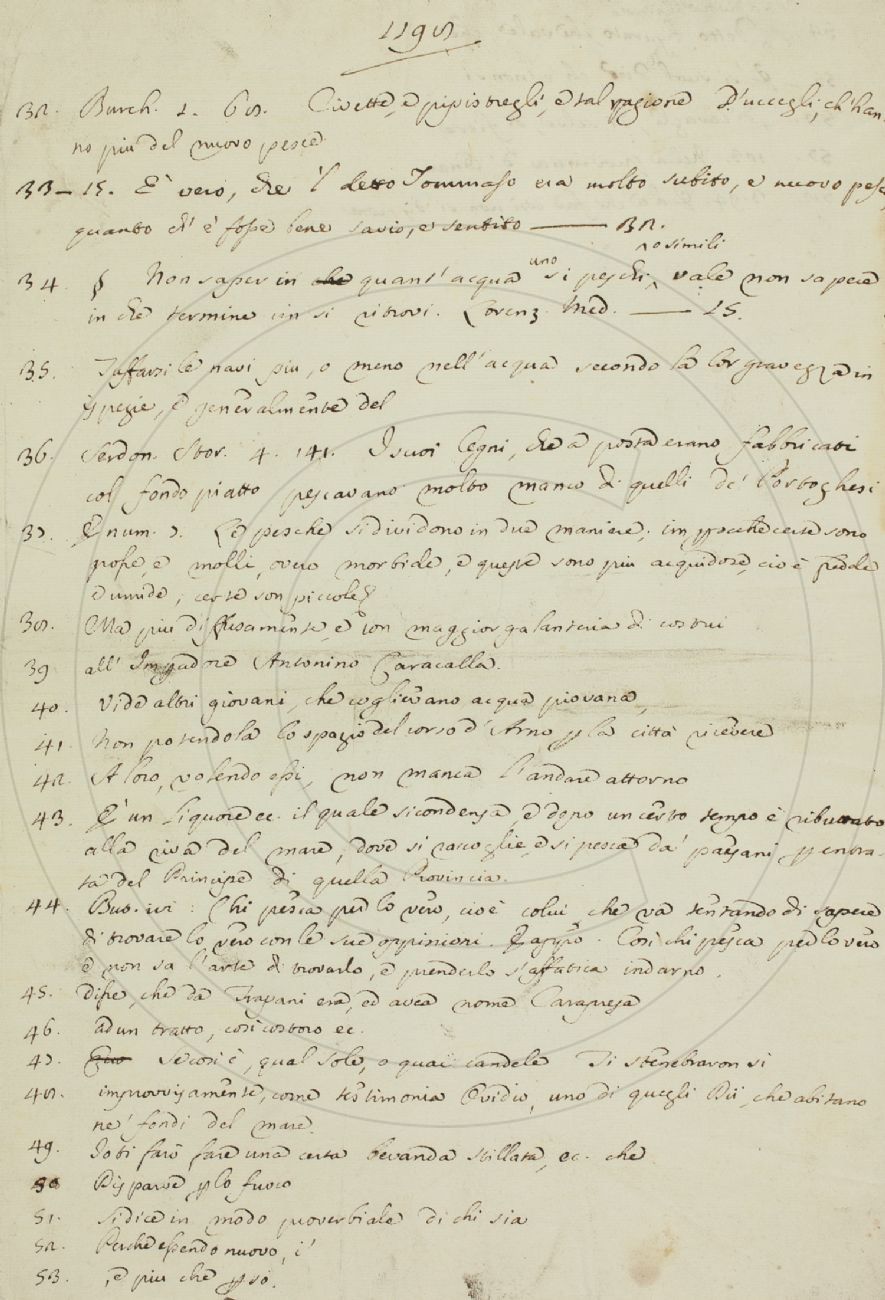 1198
32. Burch. 1. 68. Civette, e pipistregli, e tal ragione D'uccegli, ch'han-
no più del nuovo pesce
33 – 15. E' vero, che 'l detto Tommaso era molto subito, e nuovo pesc
quanto ch' e' fosse bene savio, e sentito —— 32.
34 § Non saper in che quant' acqua uno si peschi, o simili vale non sapere
in che termine un si ritrovi. Lorenz. Med. —— 15.
35. Tuffarsi le navi più, o meno nell'acqua secondo la lor gravezza in
ispezie, e generalmente del
36. Serdon. Stor. 4. 141. I suoi legni, che a posta erano fabbricati
col fondo piatto pescavano molto manco di quelli de' Portoghesi
37. E num. 7. Le pesche si dividono in due maniere; imperocchè certe sono
grosse, e molli, overo morbide, e queste sono più acquidose, cioè fredde
e umide; certe son piccole
38. Ma più diffusamente, e con maggior galanteria di costui
39 all' Imperadore Antonino Caracalla.
40. Vide altri giovani, che coglievano acqua piovana,
41. Non potendo la lo spazio del corso d'Arno per la città ricevere
42. A loro, volendo essi, non manca l'andare attorno
43. E' un liquore ec. il quale si condensa, e dopo un certo tempo è ributtato
alla riva del mare, dove si raccoglie, e si pesca da' paesani per entra-
ta del Principe di quella Provincia.
44. But. ivi: Chi pesca per lo vero, cioè colui che va tentando di sapere
di trovare lo vero con le sue oppinioni. E appresso. Così chi pesca per lo vero
e non sa l'arte di trovarlo, e prenderlo s'affatica indarno.
45. disse, che da Trapani era, ed avea nome Carapresa
46. ad un tratto, così costoro ec.
47. Se così è, qual sole, o quai candele Ti stenebraron si
48. improvvisamente, come testimonia Ovidio, uno di quegli Dii, che abitano
ne' fondi del mare.
49. Io ti farò fare una certa bevanda stillata, ec. che
50 Disparve per lo fuoco
51. Si dice in modo proverbiale di chi sia
52. Perchè essendo nuovo, i'
53. , e più che per so.